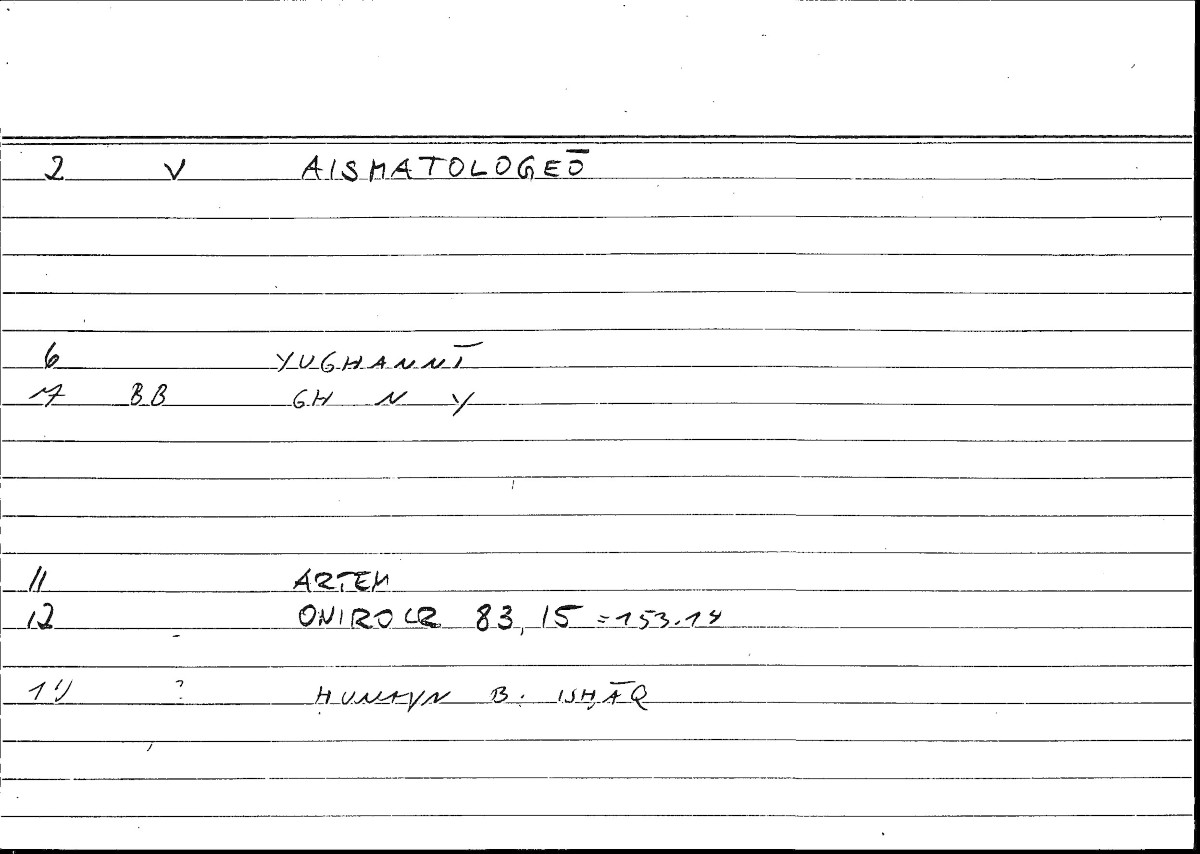 2 V AISMATOLOGEŌ
6 YUGHANNĪ
7 BB GH N Y
11 ARTEM
12 ONIROCR 83,15 =153.14
14 ? ḤUNAYN B. ISḤĀQ